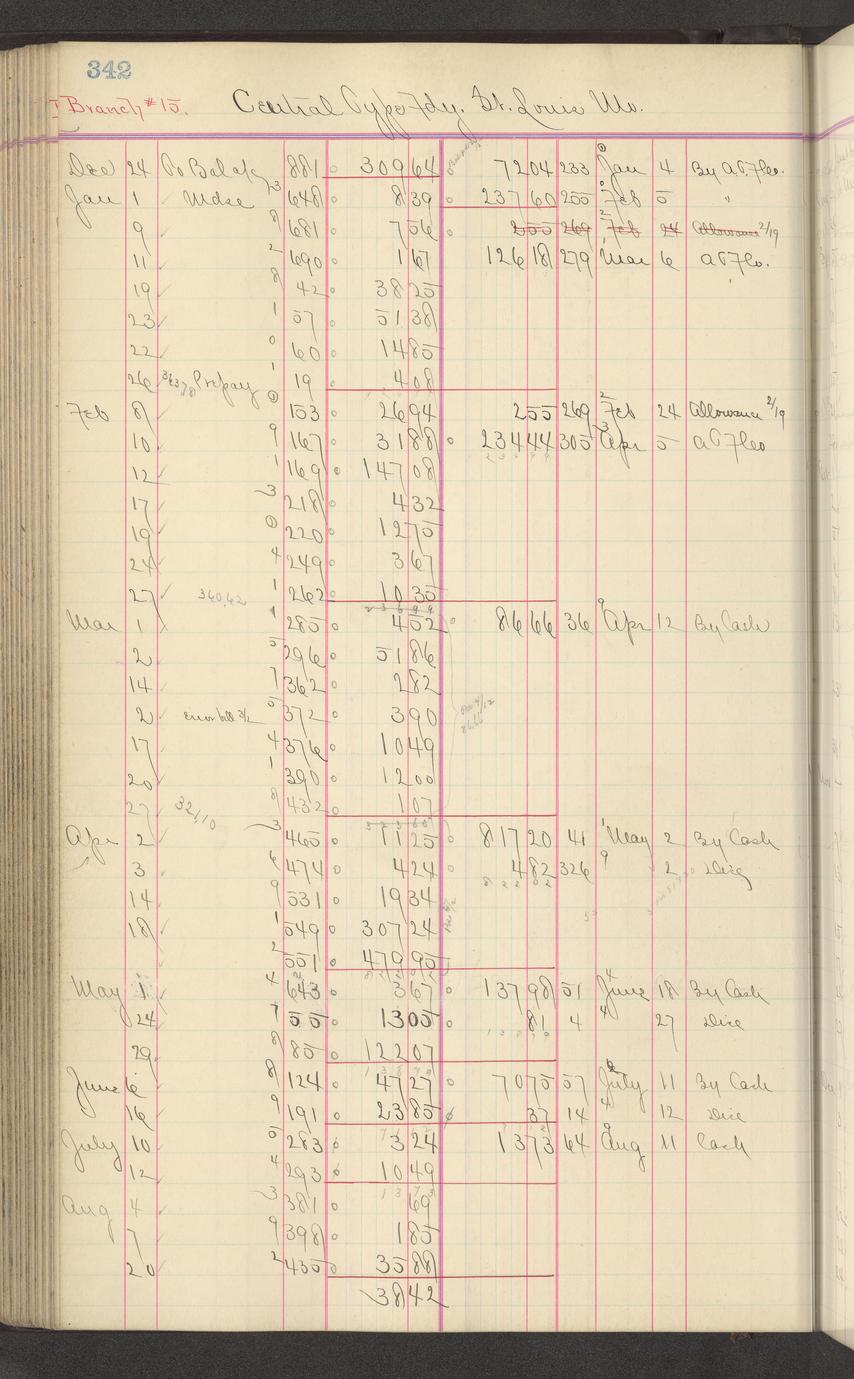 342
Branch #15. Central Type Fdy. St. Louis Mo.
Dec 24 To Bal 881 309 64 72 04 233 Jan 4 By A.T.F.Co.
Jan 1 Mdse 3 648 8 39 237 60 255 Feb 5 "
9 8 681 7 56 2 55 269 Feb 24 Allowance 2/19
11 2 690 1 67 126 18 279 Mar 6 A T F Co.
19 8 42 38 25
23 1 57 51 38
22 0 60 14 85
26 Prepay 1 19 4 08
Feb 8 0 153 26 94 2 55 269 Feb 24 Allowance 2/19
10 9 167 31 88 234 44 305 Apr 5 A T F Co
12 1 169 147 08
17 3 218 4 32
19 0 220 12 75
24 4 249 3 67
27 340.42 1 262 10 35
236 99
Mar 1 1 285 4 52 86 66 36 Apr 12 By Cash
2 5 296 51 86
14 7 362 2 82
2 Error bill 3/2 5 372 3 90
17 4 376 10 49
20 1 390 12 00
27 321,10 8 432 1 07
Apr 2 3 465 11 25 817 20 41 May 2 By Cash
3 6 474 4 24 4 82 326 2 Disc
14 9 531 19 34
18 1 549 307 24
2 551 479 95
May 1 4 643 3 67 137 98 51 June 18 By Cash
24 7 55 13 05 81 4 27 Disc
29 8 85 122 07
June 6 8 124 47 27 70 75 57 July 11 By Cash
16 9 191 23 85 37 14 12 Disc
July 10 5 283 3 24 13 73 64 Aug 11 Cash
12 4 293 10 49
13 73
Aug 4 3 381 69
7 9 398 1 85
20 2 435 35 88
38 42